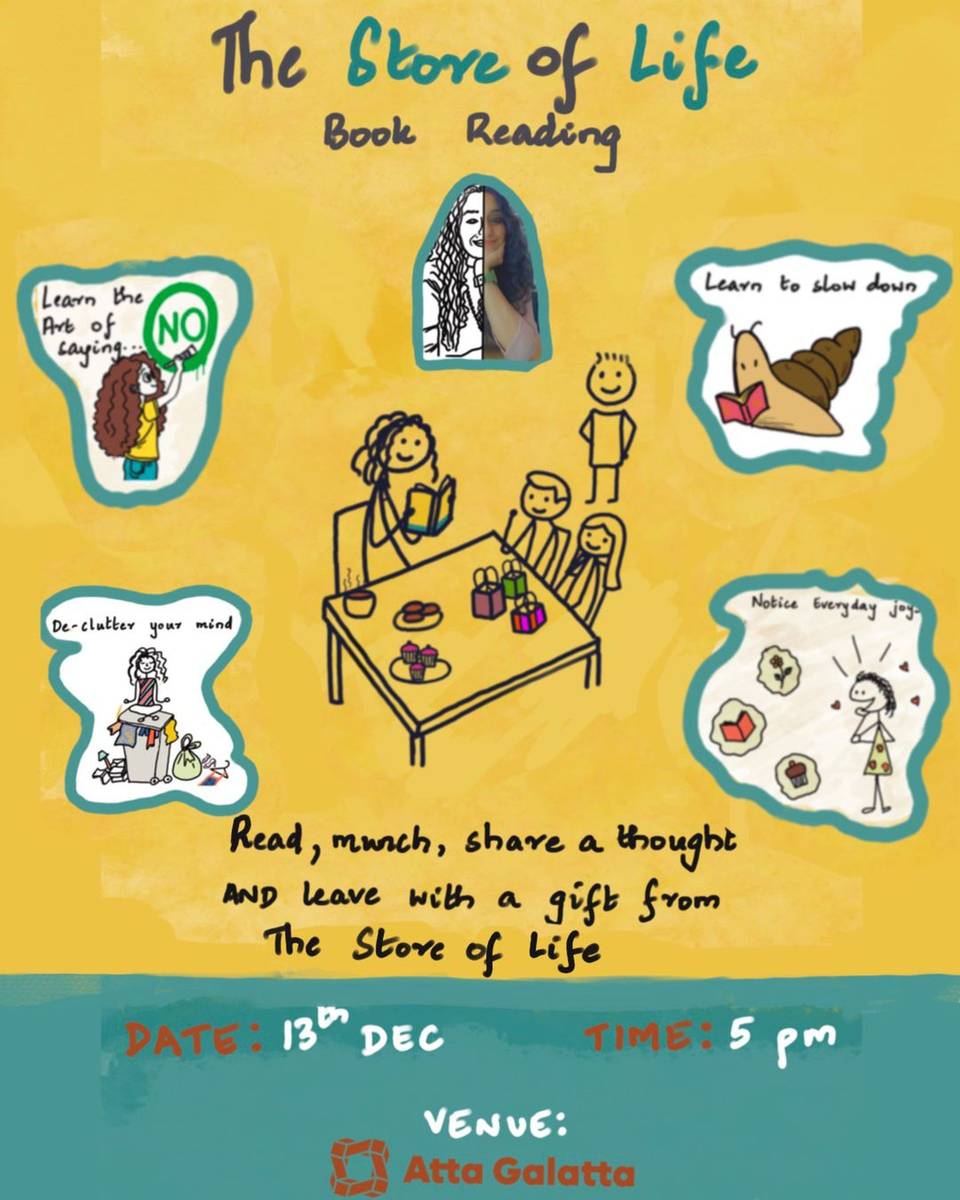 The Store of Life
Book Reading
Learn the
Art of
saying...
NO
Learn to slow down
De-clutter your mind
Notice Everyday joy.
Read, munch, share a thought
AND leave with a gift from
The Store of Life
DATE: 13th DEC
TIME: 5 pm
VENUE:
Atta Galatta